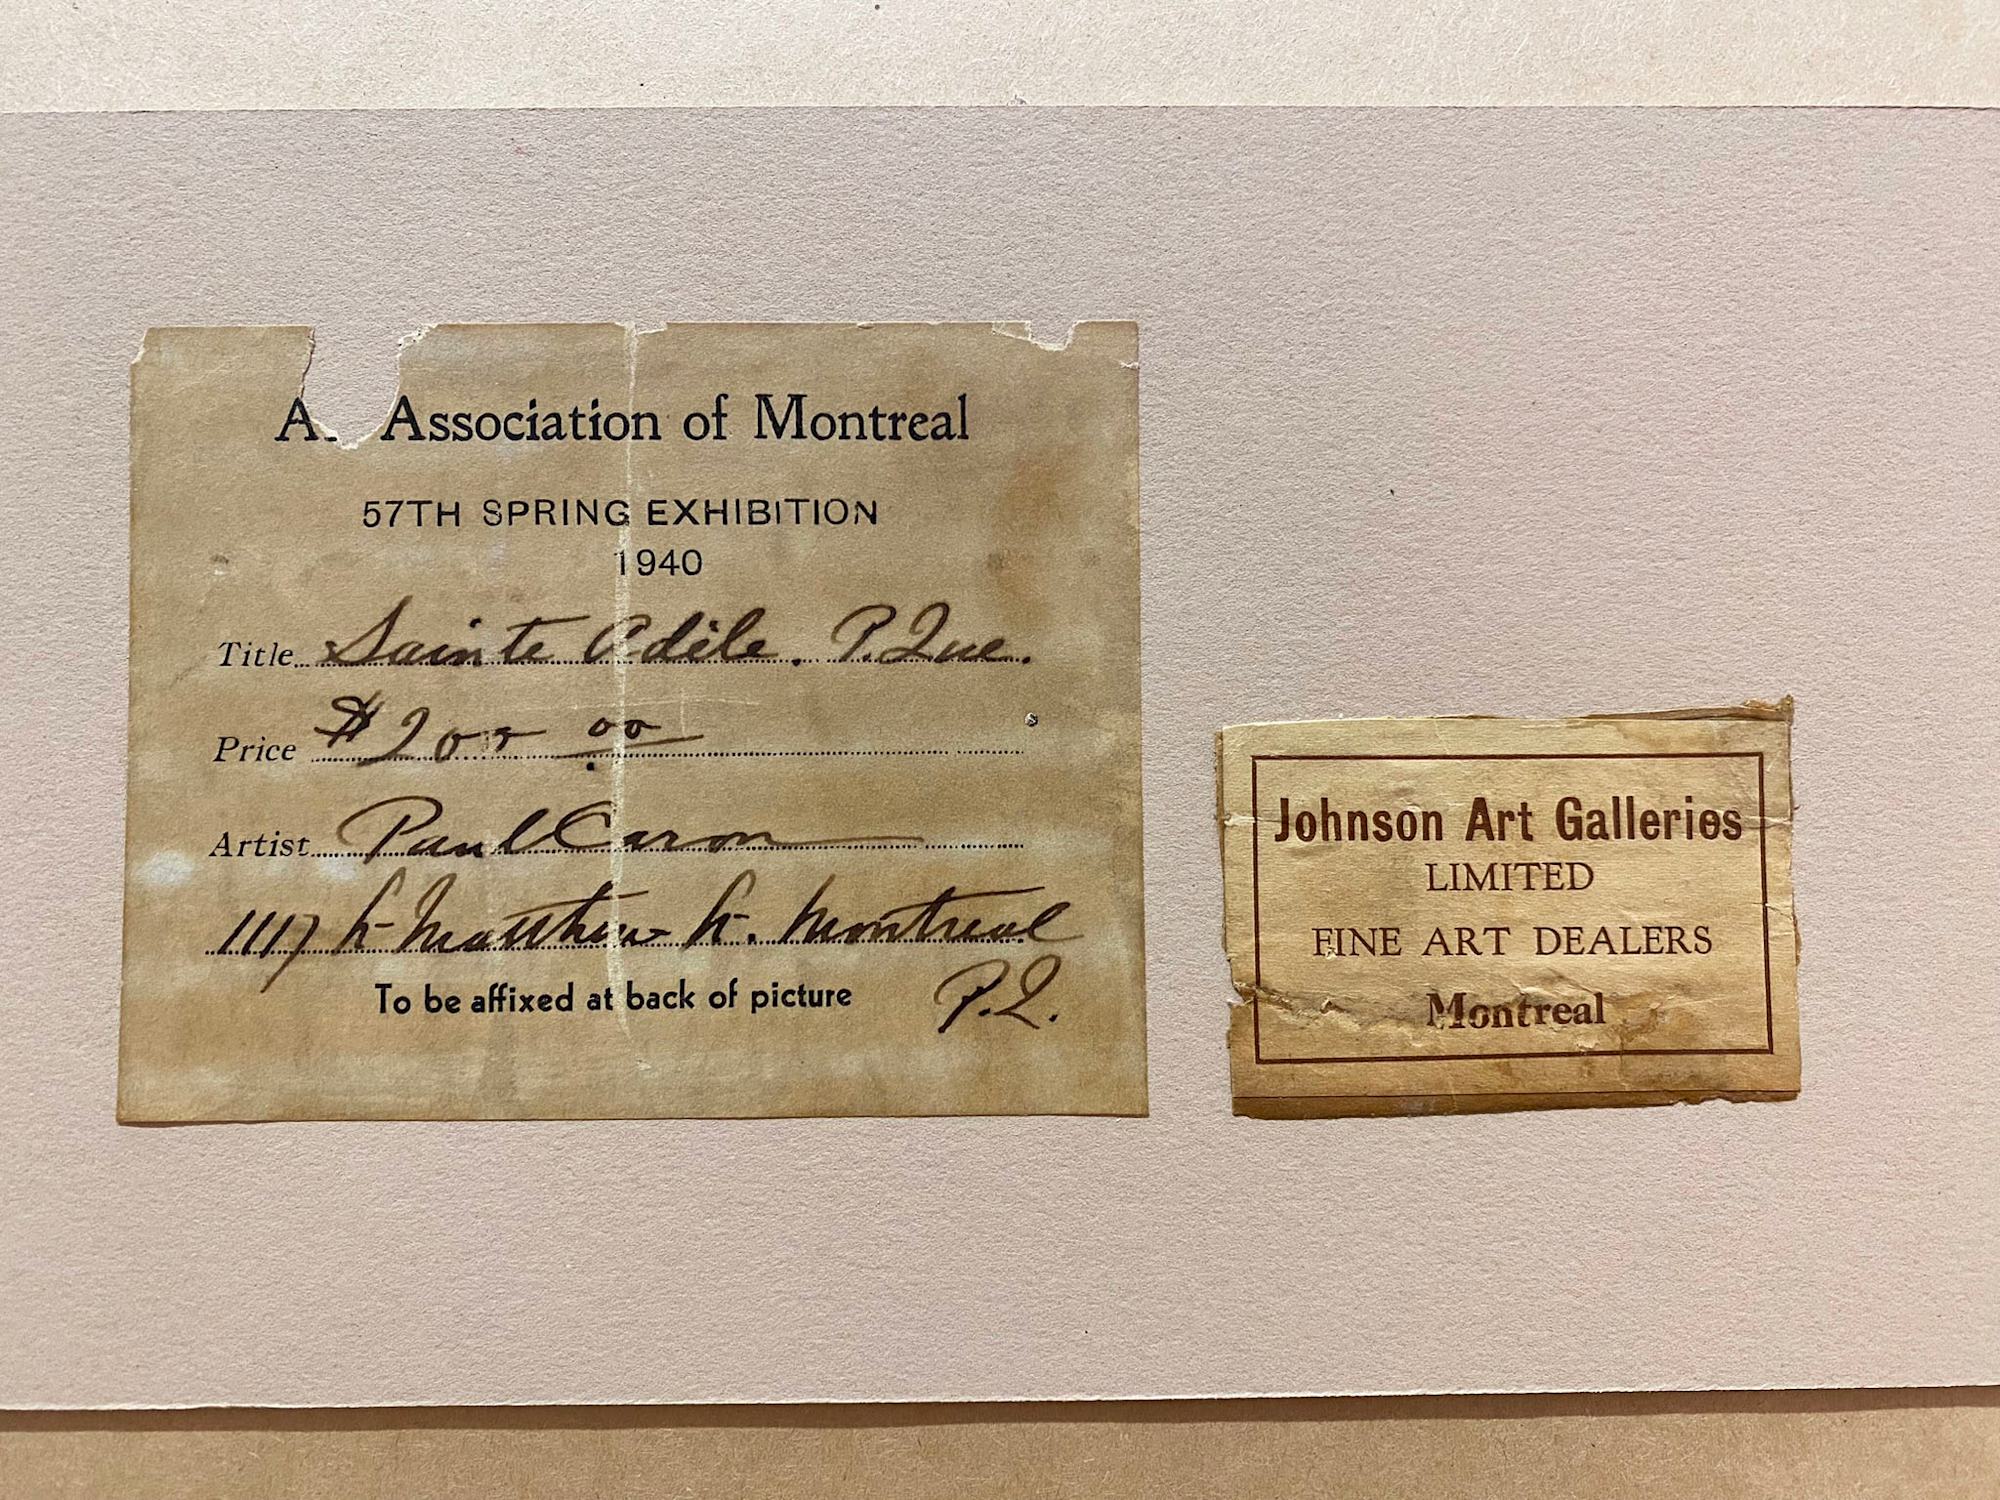 A Association of Montreal
57TH SPRING EXHIBITION
1940
Title Sainte Adèle. P. Que.
Price $200.00
Artist Paul Caron
1117 St Matthew St. Montreal
To be affixed at back of picture P.Q.
Johnson Art Galleries
LIMITED
FINE ART DEALERS
Montreal